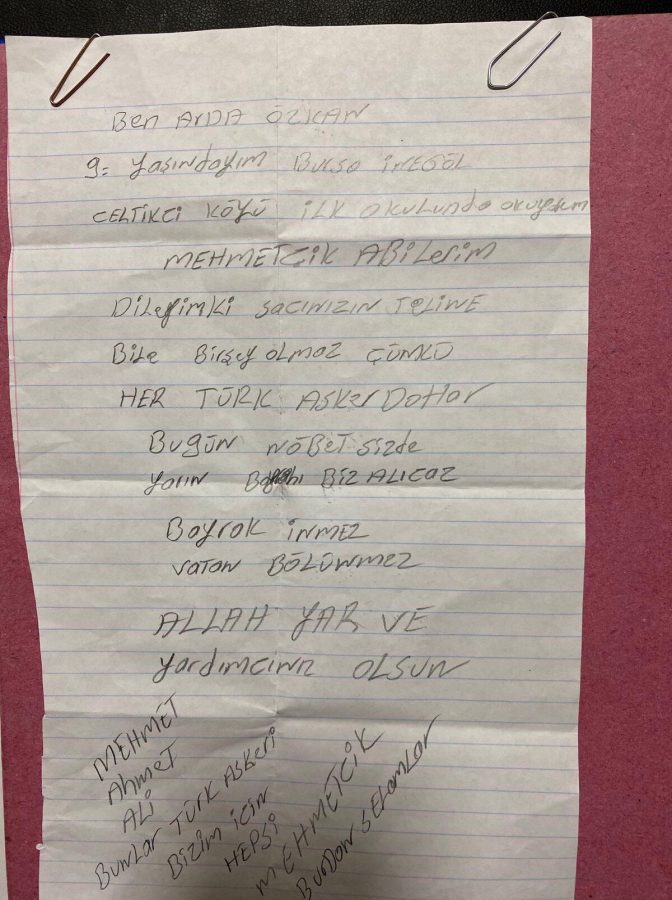 Ben ARDA ÖZKAN
9. yaşındayım Bursa İNEGÖL
CELTİKCİ KÖYÜ İLK okulunda okuyorum
MEHMETCİK ABİLerim
Dileğimki sacınızın teline
Bile Birşey olmaz ÇÜNKÜ
HER TÜRK Asker Doğar
Bugün nöBet sizde
yarın Bayrağı BİZ ALICAZ
Bayrak inmez
vatan BÖLÜNMEZ
ALLAH YAR VE
yardımcınız OLSUN
MEHMET
Ahmet
ALİ
Bunlar TÜRK ASkeri
Bizim için
HEPSİ
MEHMETCİK
Burdan SELamlar